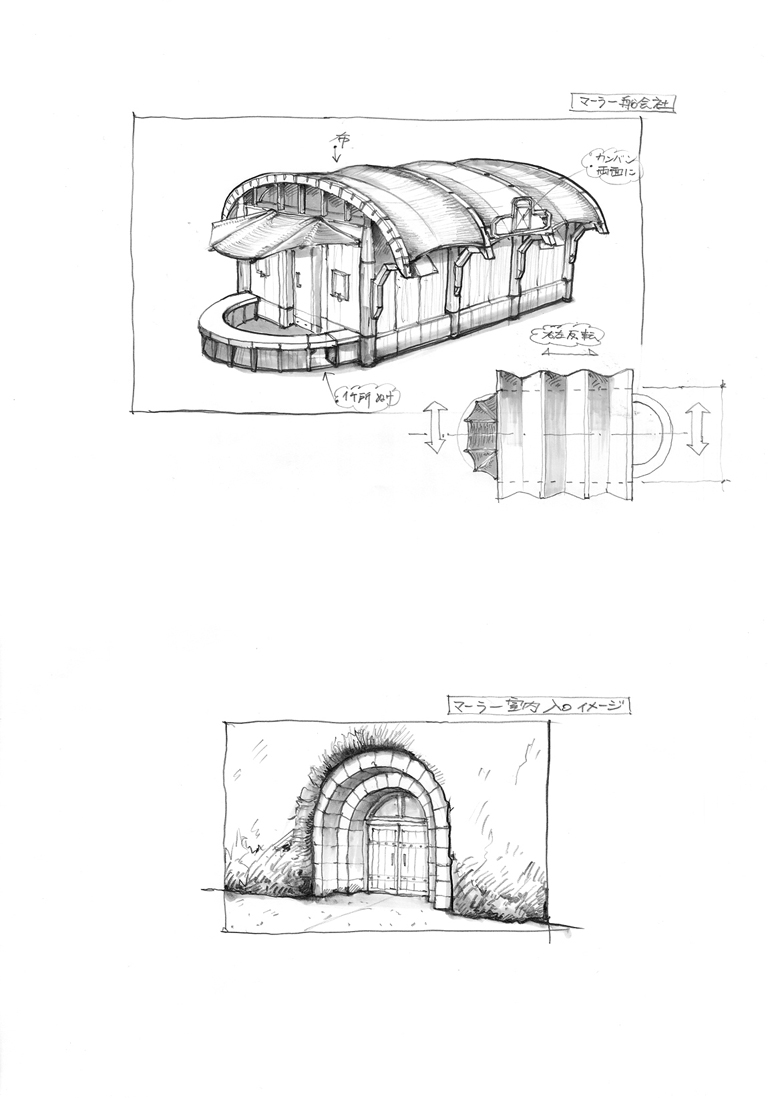 マーラー船会社
布
カンバン
両面に
左右反転
1ヶ所ぬけ
マーラー室内入口イメージ